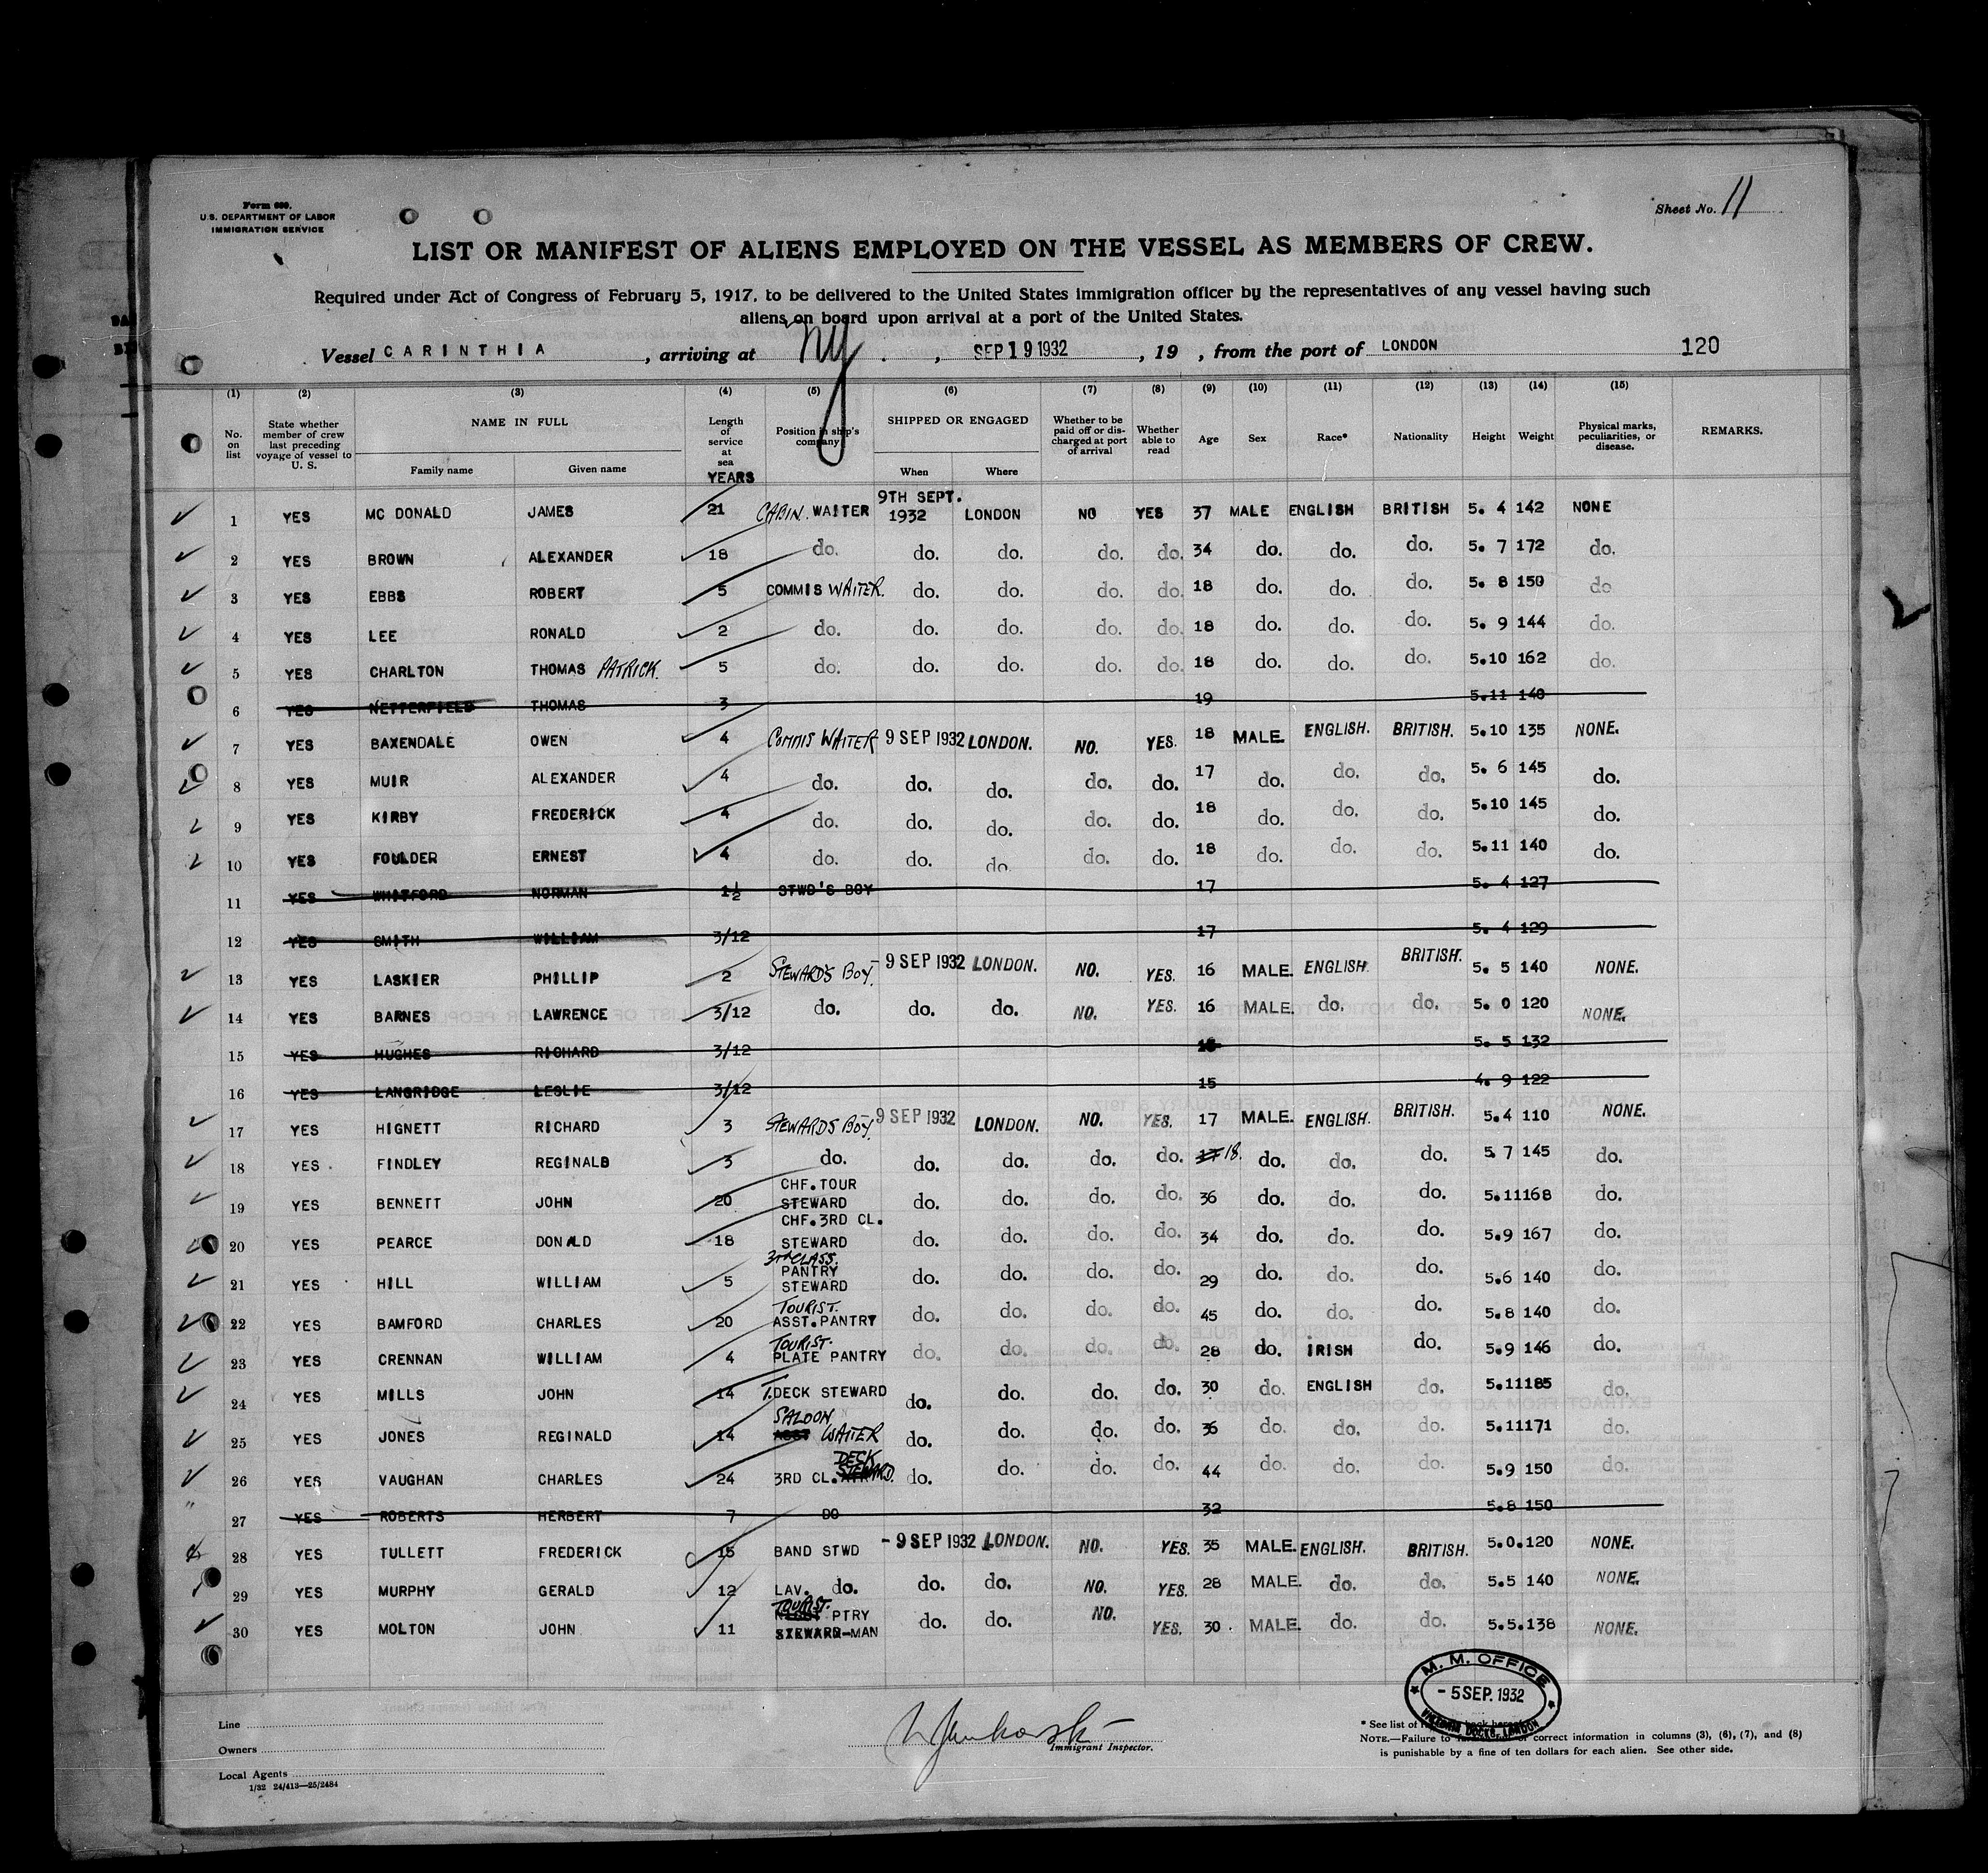 Form 680.
U.S. DEPARTMENT OF LABOR
IMMIGRATION SERVICE
Sheet No. 11
LIST OR MANIFEST OF ALIENS EMPLOYED ON THE VESSEL AS MEMBERS OF CREW.
Required under Act of Congress of February 5, 1917, to be delivered to the United States immigration officer by the representatives of any vessel having such
aliens on board upon arrival at a port of the United States.
Vessel CARINTHIA , arriving at NY , SEP 19 1932 , 19 , from the port of LONDON 120
(1) (2) (3) (4) (5) (6) (7) (8) (9) (10) (11) (12) (13) (14) (15)
No. on list State whether member of crew last preceding voyage of vessel to U. S. NAME IN FULL Family name Given name Length of service at sea YEARS Position in ship's company SHIPPED OR ENGAGED When Where Whether to be paid off or discharged at port of arrival Whether able to read Age Sex Race* Nationality Height Weight Physical marks, peculiarities, or disease. REMARKS.
1 YES MC DONALD JAMES 21 CABIN. WAITER 9TH SEPT. 1932 LONDON NO YES 37 MALE ENGLISH BRITISH 5. 4 142 NONE
2 YES BROWN ALEXANDER 18 do. do. do. do. do. 34 do. do. do. 5. 7 172 do.
3 YES EBBS ROBERT 5 COMMIS WAITER. do. do. do. do. 18 do. do. do. 5. 8 150 do
4 YES LEE RONALD 2 do. do. do. do. do. 18 do. do. do. 5. 9 144 do.
5 YES CHARLTON THOMAS PATRICK. 5 do. do. do. do. do. 18 do. do. do. 5.10 162 do.
6 YES NETTERFIELD THOMAS 3 19 5.11 140
7 YES BAXENDALE OWEN 4 COMMIS WAITER 9 SEP 1932 LONDON. NO. YES. 18 MALE. ENGLISH. BRITISH. 5.10 135 NONE.
8 YES MUIR ALEXANDER 4 do. do. do. do. do. 17 do. do. do. 5. 6 145 do.
9 YES KIRBY FREDERICK 4 do. do. do. do. do. 18 do. do. do. 5.10 145 do.
10 YES FOULDER ERNEST 4 do. do. do. do. do. 18 do. do. do. 5.11 140 do.
11 YES WHATFORD NORMAN 1½ STWD'S BOY 17 5. 4 127
12 YES SMITH WILLIAM 3/12 17 5. 4 129
13 YES LASKIER PHILLIP 2 STEWARD'S BOY. - 9 SEP 1932 LONDON. NO. YES. 16 MALE. ENGLISH. BRITISH. 5. 5 140 NONE.
14 YES BARNES LAWRENCE 3/12 do. do. do. NO. YES. 16 MALE. do. do. 5. 0 120 NONE.
15 YES HUGHES RICHARD 3/12 5. 5 132
16 YES LANGRIDGE LESLIE 3/12 15 4. 9 122
17 YES HIGNETT RICHARD 3 STEWARDS BOY. 9 SEP 1932 LONDON. NO. YES. 17 MALE. ENGLISH. BRITISH. 5.4 110 NONE.
18 YES . FINDLEY REGINALD 3 do. do. do. do. do. 17 18. do. do. do. 5. 7 145 do.
19 YES BENNETT JOHN 20 CHF. TOUR STEWARD do. do. do. do. 36 do. do. do. 5.11 168 do.
20 YES PEARCE DONALD 18 CHF. 3RD CL. STEWARD do. do. do. do. 34 do. do. do. 5.9 167 do.
21 YES HILL WILLIAM 5 3rd CLASS. PANTRY STEWARD do. do. do. do. 29 do. do. do. 5.6 140 do.
22 YES BAMFORD CHARLES 20 TOURIST. ASST. PANTRY do. do. do. do. 45 do. do. do. 5.8 140 do.
23 YES CRENNAN WILLIAM 4 TOURIST. PLATE PANTRY do. do. do. do. 28 do. IRISH do. 5.9 146 do.
24 YES MILLS JOHN 14 T. DECK STEWARD do. do. do. do. 30 do. ENGLISH do. 5.11 185 do.
25 YES JONES REGINALD 14 SALOON ASST WAITER do. do. do. do. 36 do. do. do. 5.11 171 do.
26 YES VAUGHAN CHARLES 24 3RD CL. DECK STEWARD. do. do. do. do. 44 do. do. do. 5.9 150 do.
27 YES ROBERTS HERBERT 7 DO 32 5.8 150
28 YES TULLETT FREDERICK 15 BAND STWD - 9 SEP 1932 LONDON. NO. YES. 35 MALE. ENGLISH. BRITISH. 5.0.120 NONE.
29 YES MURPHY GERALD 12 LAV. do. do. do. NO. YES. 28 MALE. do. do. 5.5 140 NONE.
30 YES MOLTON JOHN 11 TOURIST. PTRY STEWARD-MAN do. do. NO. YES. 30 . MALE. do. do. 5.5.138 NONE.
M. M. OFFICE
- 5 SEP. 1932
VICTORIA DOCKS, LONDON
Line
Owners
Local Agents
1/32 24/413—25/2484
Immigrant Inspector.
* See list of
NOTE.—Failure to correct information in columns (3), (6), (7), and (8)
is punishable by a fine of ten dollars for each alien. See other side.